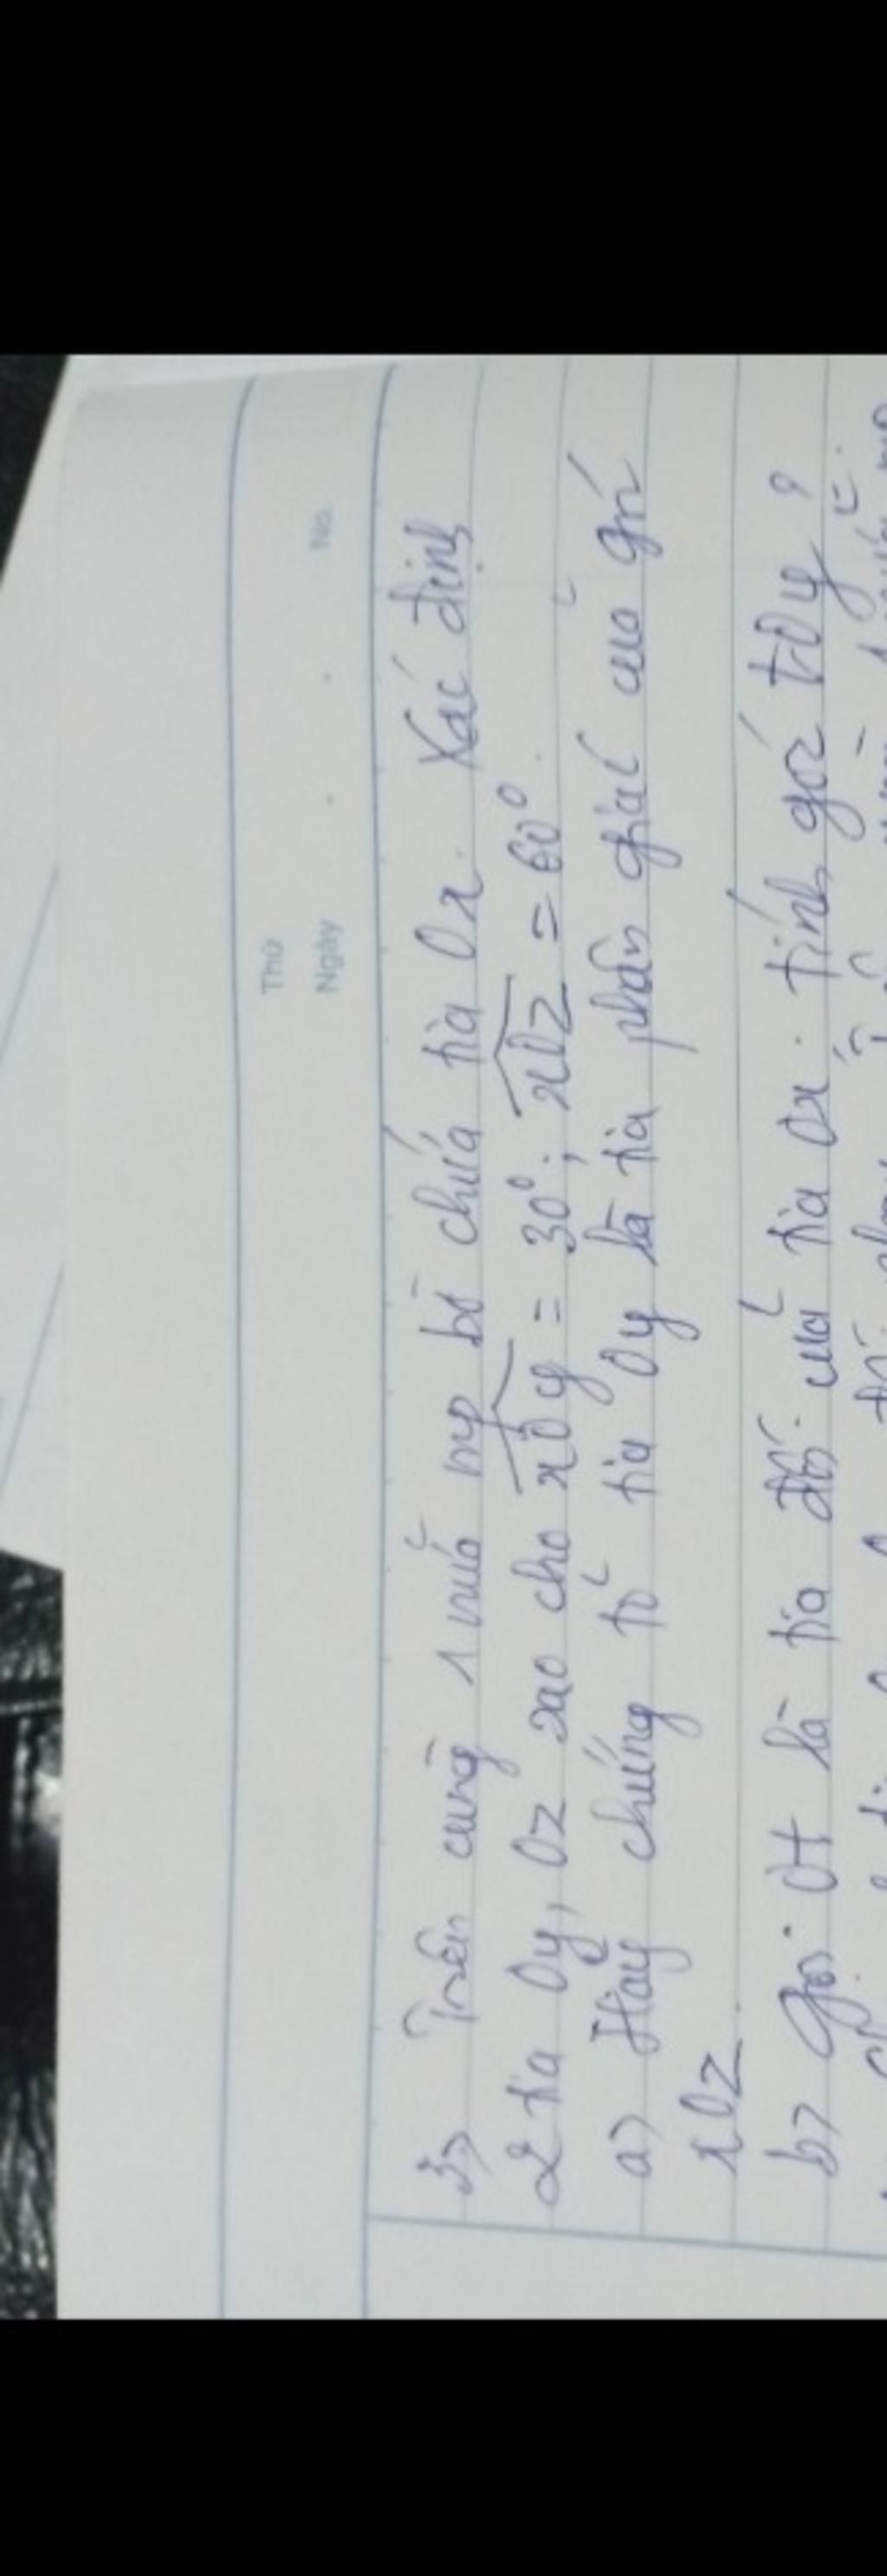 Thứ
Ngày No.
3) Trên cùng 1 nửa mp bờ chứa tia Ox. Xác định
2 tia Oy, Oz sao cho xOy = 30°; xOz = 60°.
a) Hãy chứng tỏ tia Oy là tia phân giác của góc
xOz.
b) Gọi Ot là tia đối của tia Ox. Tính góc tOy?